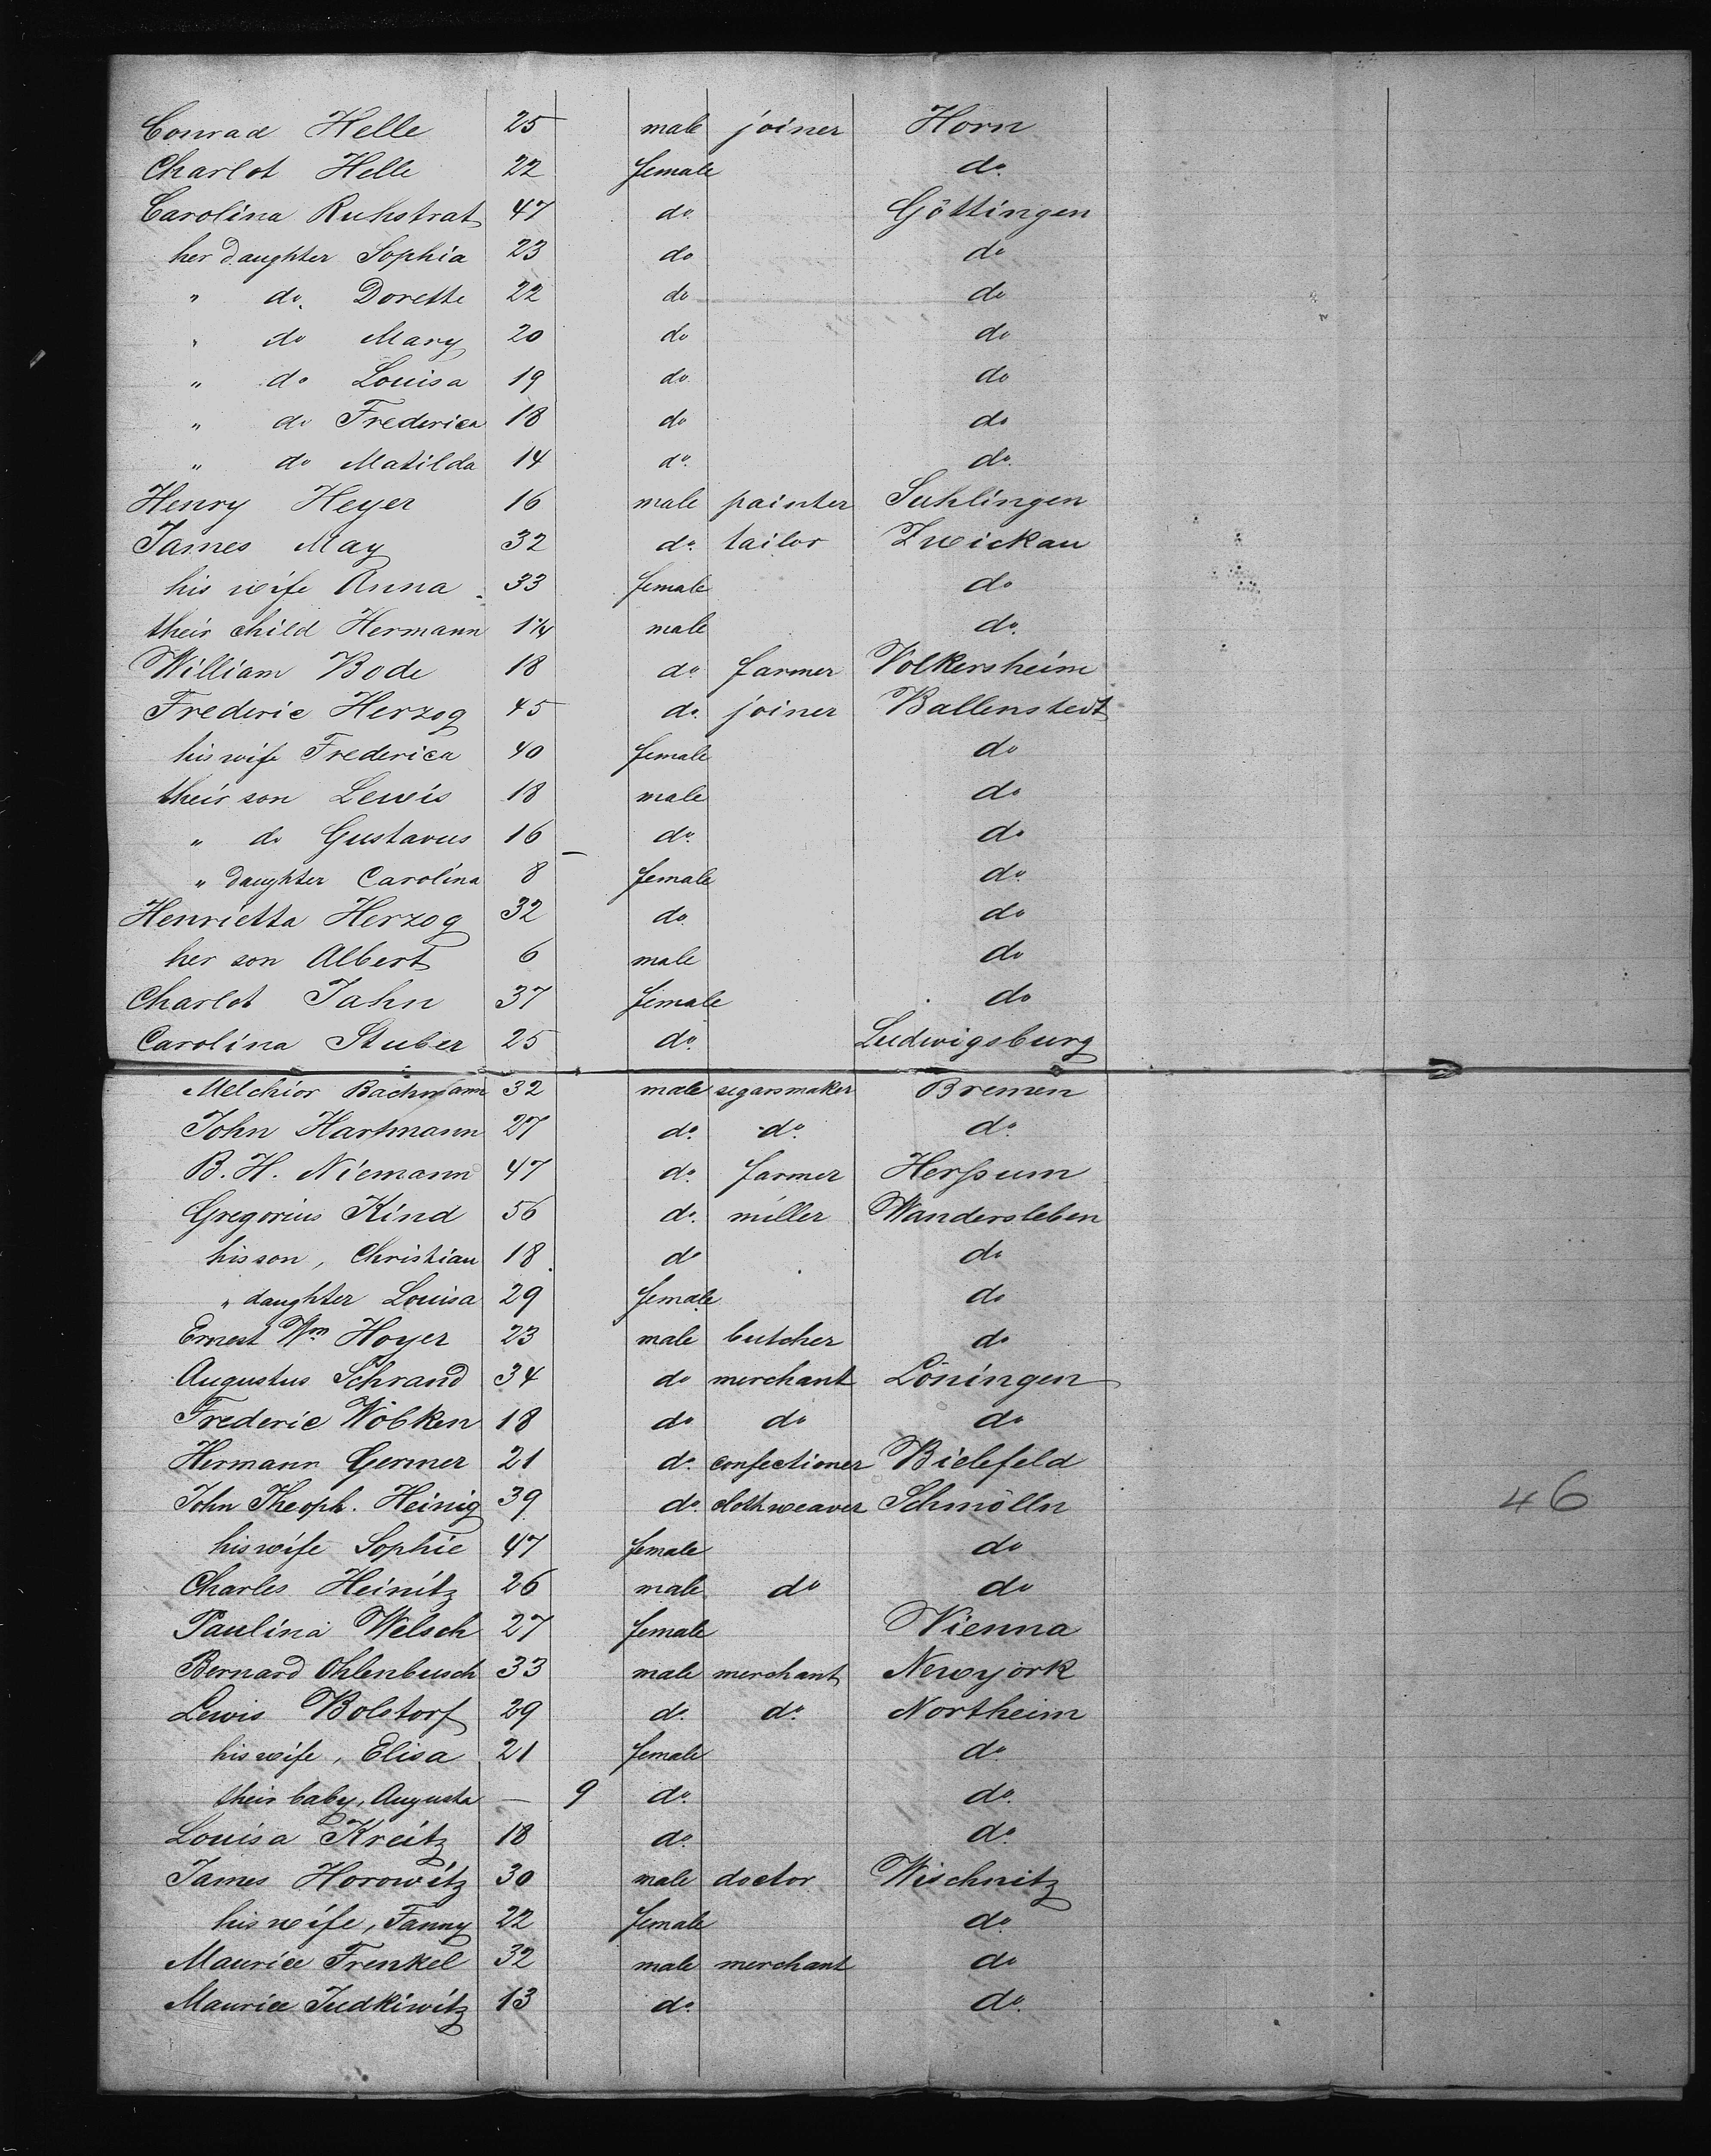 Conrad Helle 25 male joiner Horn
Charlot Helle 22 female do.
Carolina Ruhstrat 47 do. Göttingen
her daughter Sophia 23 do do
" do. Dorette 22 do do
" do Mary 20 do do
" do Louisa 19 do. do
" do Frederica 18 do do
" do Matilda 14 do. do.
Henry Heyer 16 male painter Suhlingen
James May 32 do. tailor Zwickau
his wife Anna 33 female do
their child Hermann 1¼ male do.
William Bode 18 do. farmer Volkersheim
Frederic Herzog 45 do. joiner Ballenstedt
his wife Frederica 40 female do
their son Lewis 18 male do
" do Gustavus 16 do. do
" daughter Carolina 8 female do.
Henrietta Herzog 32 do. do
her son Albert 6 male do
Charlot Jahn 37 female do
Carolina Stuber 25 do. Ludwigsburg
Melchior Bachmann 32 male segarsmaker Bremen
John Hartmann 27 do. do. do.
B. H. Niemann 47 do. farmer Herßum
Gregorius Kind 56 do. miller Wandersleben
his son, Christian 18 do do
" daughter Louisa 29 female do
Ernest Wm Hoyer 23 male butcher do
Augustus Schrand 34 do merchant Löningen
Frederic Wöbken 18 do do do
Hermann Germer 21 do. confectioner Bielefeld
John Theoph. Heinig 39 do. clothweaver Schmölln
46
his wife Sophie 47 female do
Charles Heinitz 26 male do do
Paulina Welsch 27 female Vienna
Bernard Ohlenbusch 33 male merchant Newyork
Lewis Bolstorf 29 do. do. Northeim
his wife, Elisa 21 female do.
their baby, Augusta — 9 do. do.
Louisa Kreitz 18 do. do.
James Horowitz 30 male doctor Wischnitz
his wife, Fanny 22 female do.
Maurice Frenkel 32 male merchant do
Maurice Judkiwitz 13 do. do.